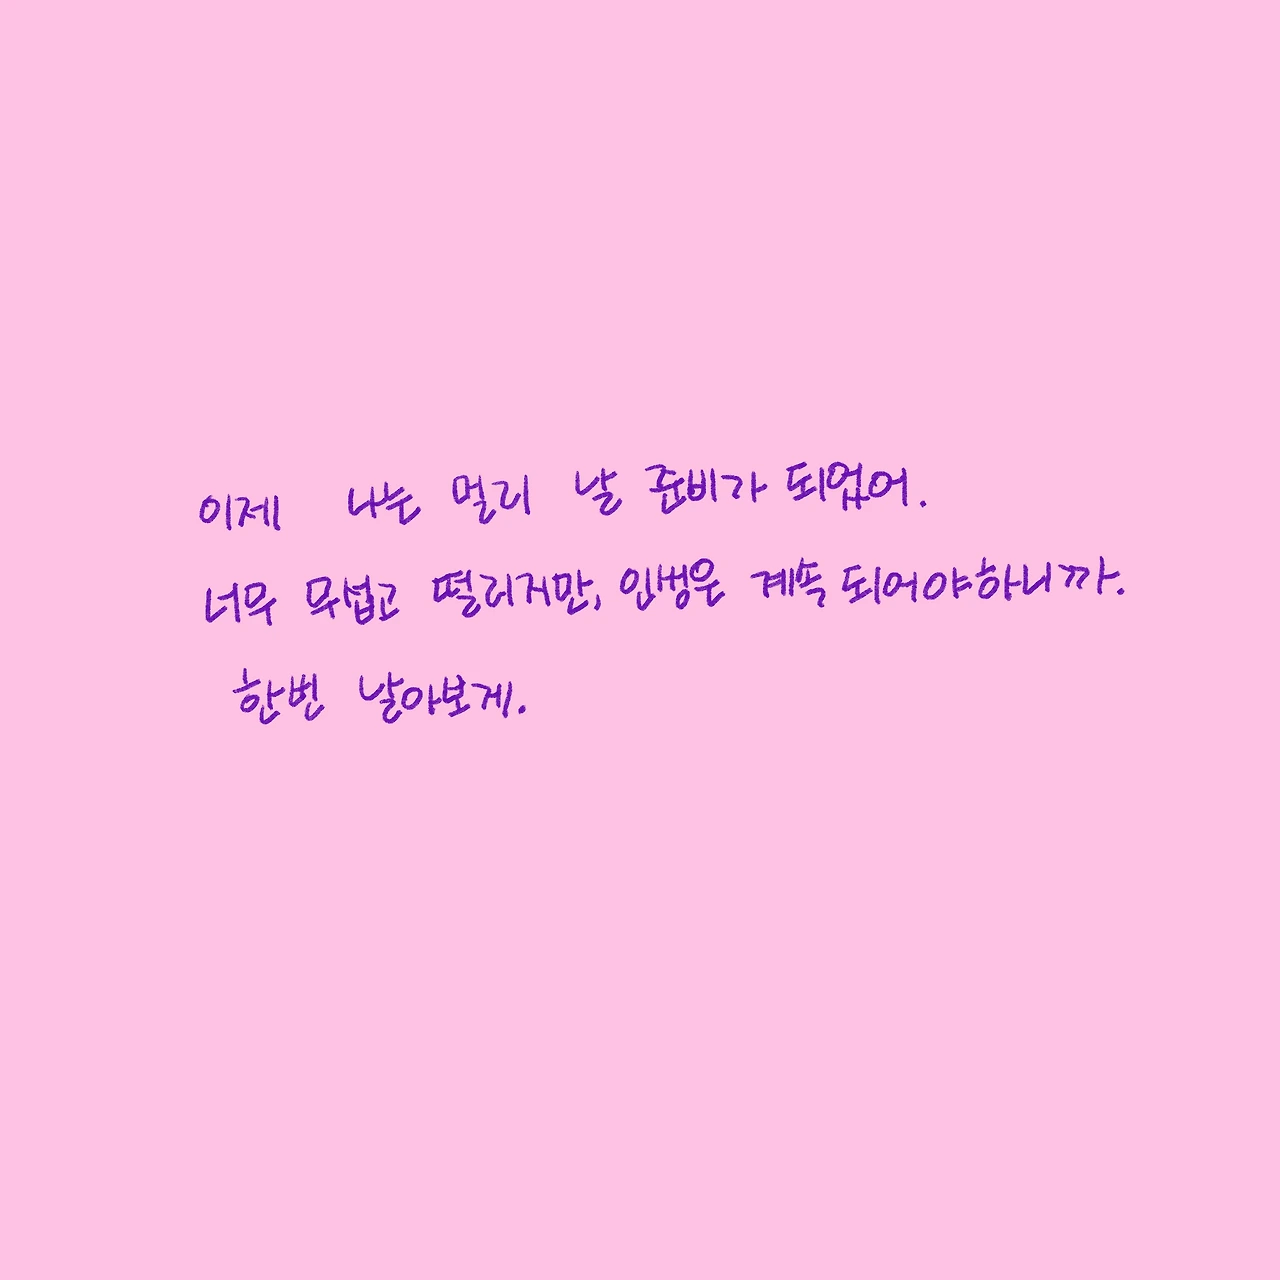 이제 나는 멀리 날 준비가 되었어.
너무 무섭고 떨리지만, 인생은 계속 되어야하니까.
한번 날아보게.